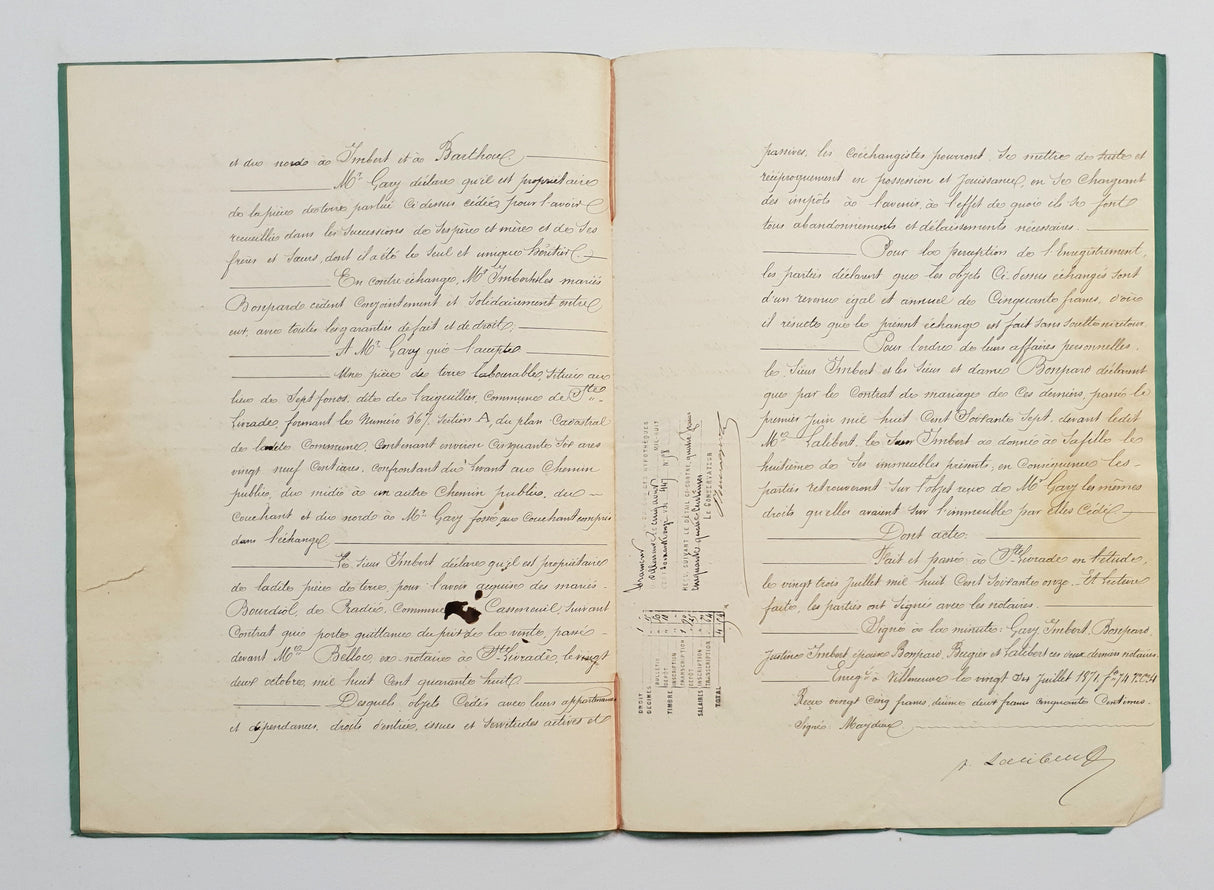 et du nord à Imbert et à Barthoul
Mr. Gary déclare qu'il est propriétaire
de la pièce de terre par lui ci dessus cédée, pour l'avoir
recueillie dans les successions de ses père et mère et de ses
frères et sœurs, dont il a été le seul et unique héritier.
En contre-échange, Mr. Imbert et les mariés
Bonpard cèdent conjointement et solidairement entre
eux, avec toutes les garanties de fait et de droit,
A Mr. Gary qui l'accepte
Une pièce de terre labourable, située au
lieu de Septfonds, dite de commune de Ste
Livrade, formant le Numéro 367, section A, du plan cadastral
de ladite commune, contenant environ cinquante six ares
vingt neuf centiares, confrontant du levant au chemin
public, du midi à un autre chemin public, du
couchant et du nord à Mr. Gary, au couchant compris
dans l'échange
Le sieur Imbert déclare qu'il est propriétaire
de ladite pièce de terre, pour l'avoir acquise des mariés
Bourdiol, de Radié, commune Casseneuil, suivant
contrat qui porte quittance du prix de la vente, passé
devant Me. Belloc, ex-notaire à Ste Livrade, le vingt
deux octobre, mil huit cent quarante huit.
Desquels objets cédés avec leurs appartenances
et dépendances, droits d'entrée, issues et servitudes actives et
passives, les coéchangistes pourront se mettre de suite et
réciproquement en possession et jouissance, en se chargeant
des impôts à l'avenir, à l'effet de quoi ils se font
tous abandonnements et délaissements nécessaires.
Pour la perception de l'Enregistrement,
les parties déclarent que les objets ci dessus échangés sont
d'un revenu égal et annuel de cinquante francs, d'où
il résulte que le présent échange est fait sans soulte ni retour.
Pour l'ordre de leurs affaires personnelles,
le sieur Imbert et les sieur et dame Bonpard déclarent
que par le contrat de mariage de ces derniers, passé le
premier juin mil huit cent soixante sept, devant ledit
Me. Lalibert, le sieur Imbert a donné à sa fille le
huitième de ses immeubles présents, en conséquence les
parties retrouveront sur l'objet reçu de Mr. Gary les mêmes
droits qu'elles avaient sur l'immeuble par elles cédé
Dont acte.
Fait et passé à Ste Livrade en l'étude,
le vingt trois juillet mil huit cent soixante onze. Et lecture
faite, les parties ont signé avec les notaires.
Signé à la minute: Gary, Imbert, Bonpard,
Justine Imbert épouse Bonpard, Bergier et Lalibert ces deux derniers notaires.
Enregé. à Villeneuve le vingt six juillet 1871, fo. 74
Reçu vingt cinq francs, décime deux francs cinquante centimes.
Signé:
HYPOTHÈQUES
MIL HUIT
vol. 447 No. 98
REÇU SUIVANT LE DÉTAIL CI-CONTRE, quatre francs
cinquante quatre centimes
LE CONSERVATEUR
DROIT
DÉCIMES
TIMBRE
BULLETIN
DÉPÔT
INSCRIPTION
TRANSCRIPTION
SALAIRES
DÉPÔT
INSCRIPTION
TRANSCRIPTION
TOTAL